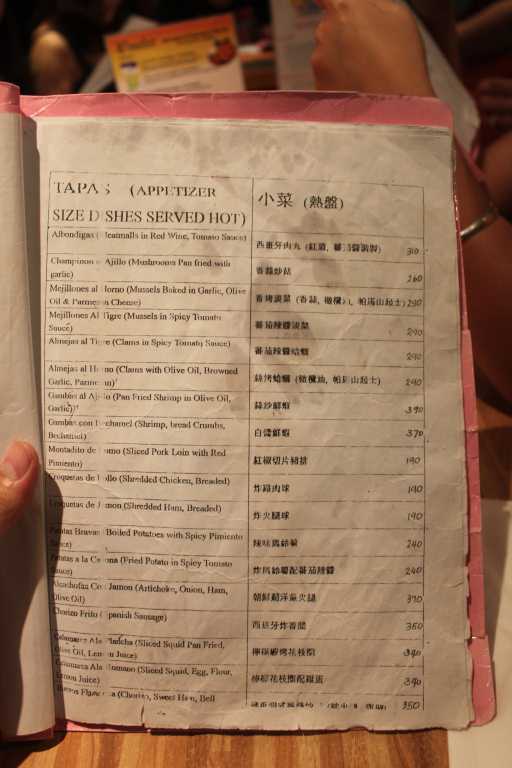 TAPAS (APPETIZER
SIZE DISHES SERVED HOT)
小菜 (熱盤)
Albondigas (Meatballs in Red Wine, Tomato Sauce)
西班牙肉丸 (紅酒, 蕃茄醬調製) 310
Champinon Ajillo (Mushrooms Pan fried with
garlic)
香蒜炒菇 260
Mejillones al Horno (Mussels Baked in Garlic, Olive
Oil & Parmesan Cheese)
香烤淡菜 (香蒜, 橄欖, 帕瑪山起士) 290
Mejillones Al Tigre (Mussels in Spicy Tomato
Sauce)
蕃茄辣醬淡菜 290
Almejas al Tigre (Clams in Spicy Tomato Sauce)
蕃茄辣醬蛤蠣 290
Almejas al Horno (Clams with Olive Oil, Browned
Garlic, Parmesan)
絲烤蛤蠣 (橄欖油, 帕瑪山起士) 290
Gambas al Ajillo (Pan Fried Shrimp in Olive Oil,
Garlic)
蒜炒鮮蝦 390
Gambas con Bechamel (Shrimp, bread Crumbs,
Bechamel)
白醬鮮蝦 370
Montadito de Lomo (Sliced Pork Loin with Red
Pimiento)
紅椒切片豬排 190
Croquetas de Pollo (Shredded Chicken, Breaded)
炸雞肉球 190
Croquetas de Jamon (Shredded Ham, Breaded)
炸火腿球 190
Patatas Bravas (Boiled Potatoes with Spicy Pimiento
Sauce)
辣味馬鈴薯 240
Patatas a la Carona (Fried Potato in Spicy Tomato
Sauce)
炸馬鈴薯配蕃茄辣醬 240
Alcachofas Con Jamon (Artichoke, Onion, Ham,
Olive Oil)
朝鮮薊洋蔥火腿 370
Chorizo Frito (Spanish Sausage)
西班牙炸香腸 350
Calamares Ala Plancha (Sliced Squid Pan Fried,
Olive Oil, Lemon Juice)
檸檬碳烤花枝圈 390
Calamares Ala Romano (Sliced Squid, Egg, Flour,
Lemon Juice)
檸檬花枝圈配雞蛋 390
Huevos Flamenca (Chorizo, Sweet Ham, Bell
350